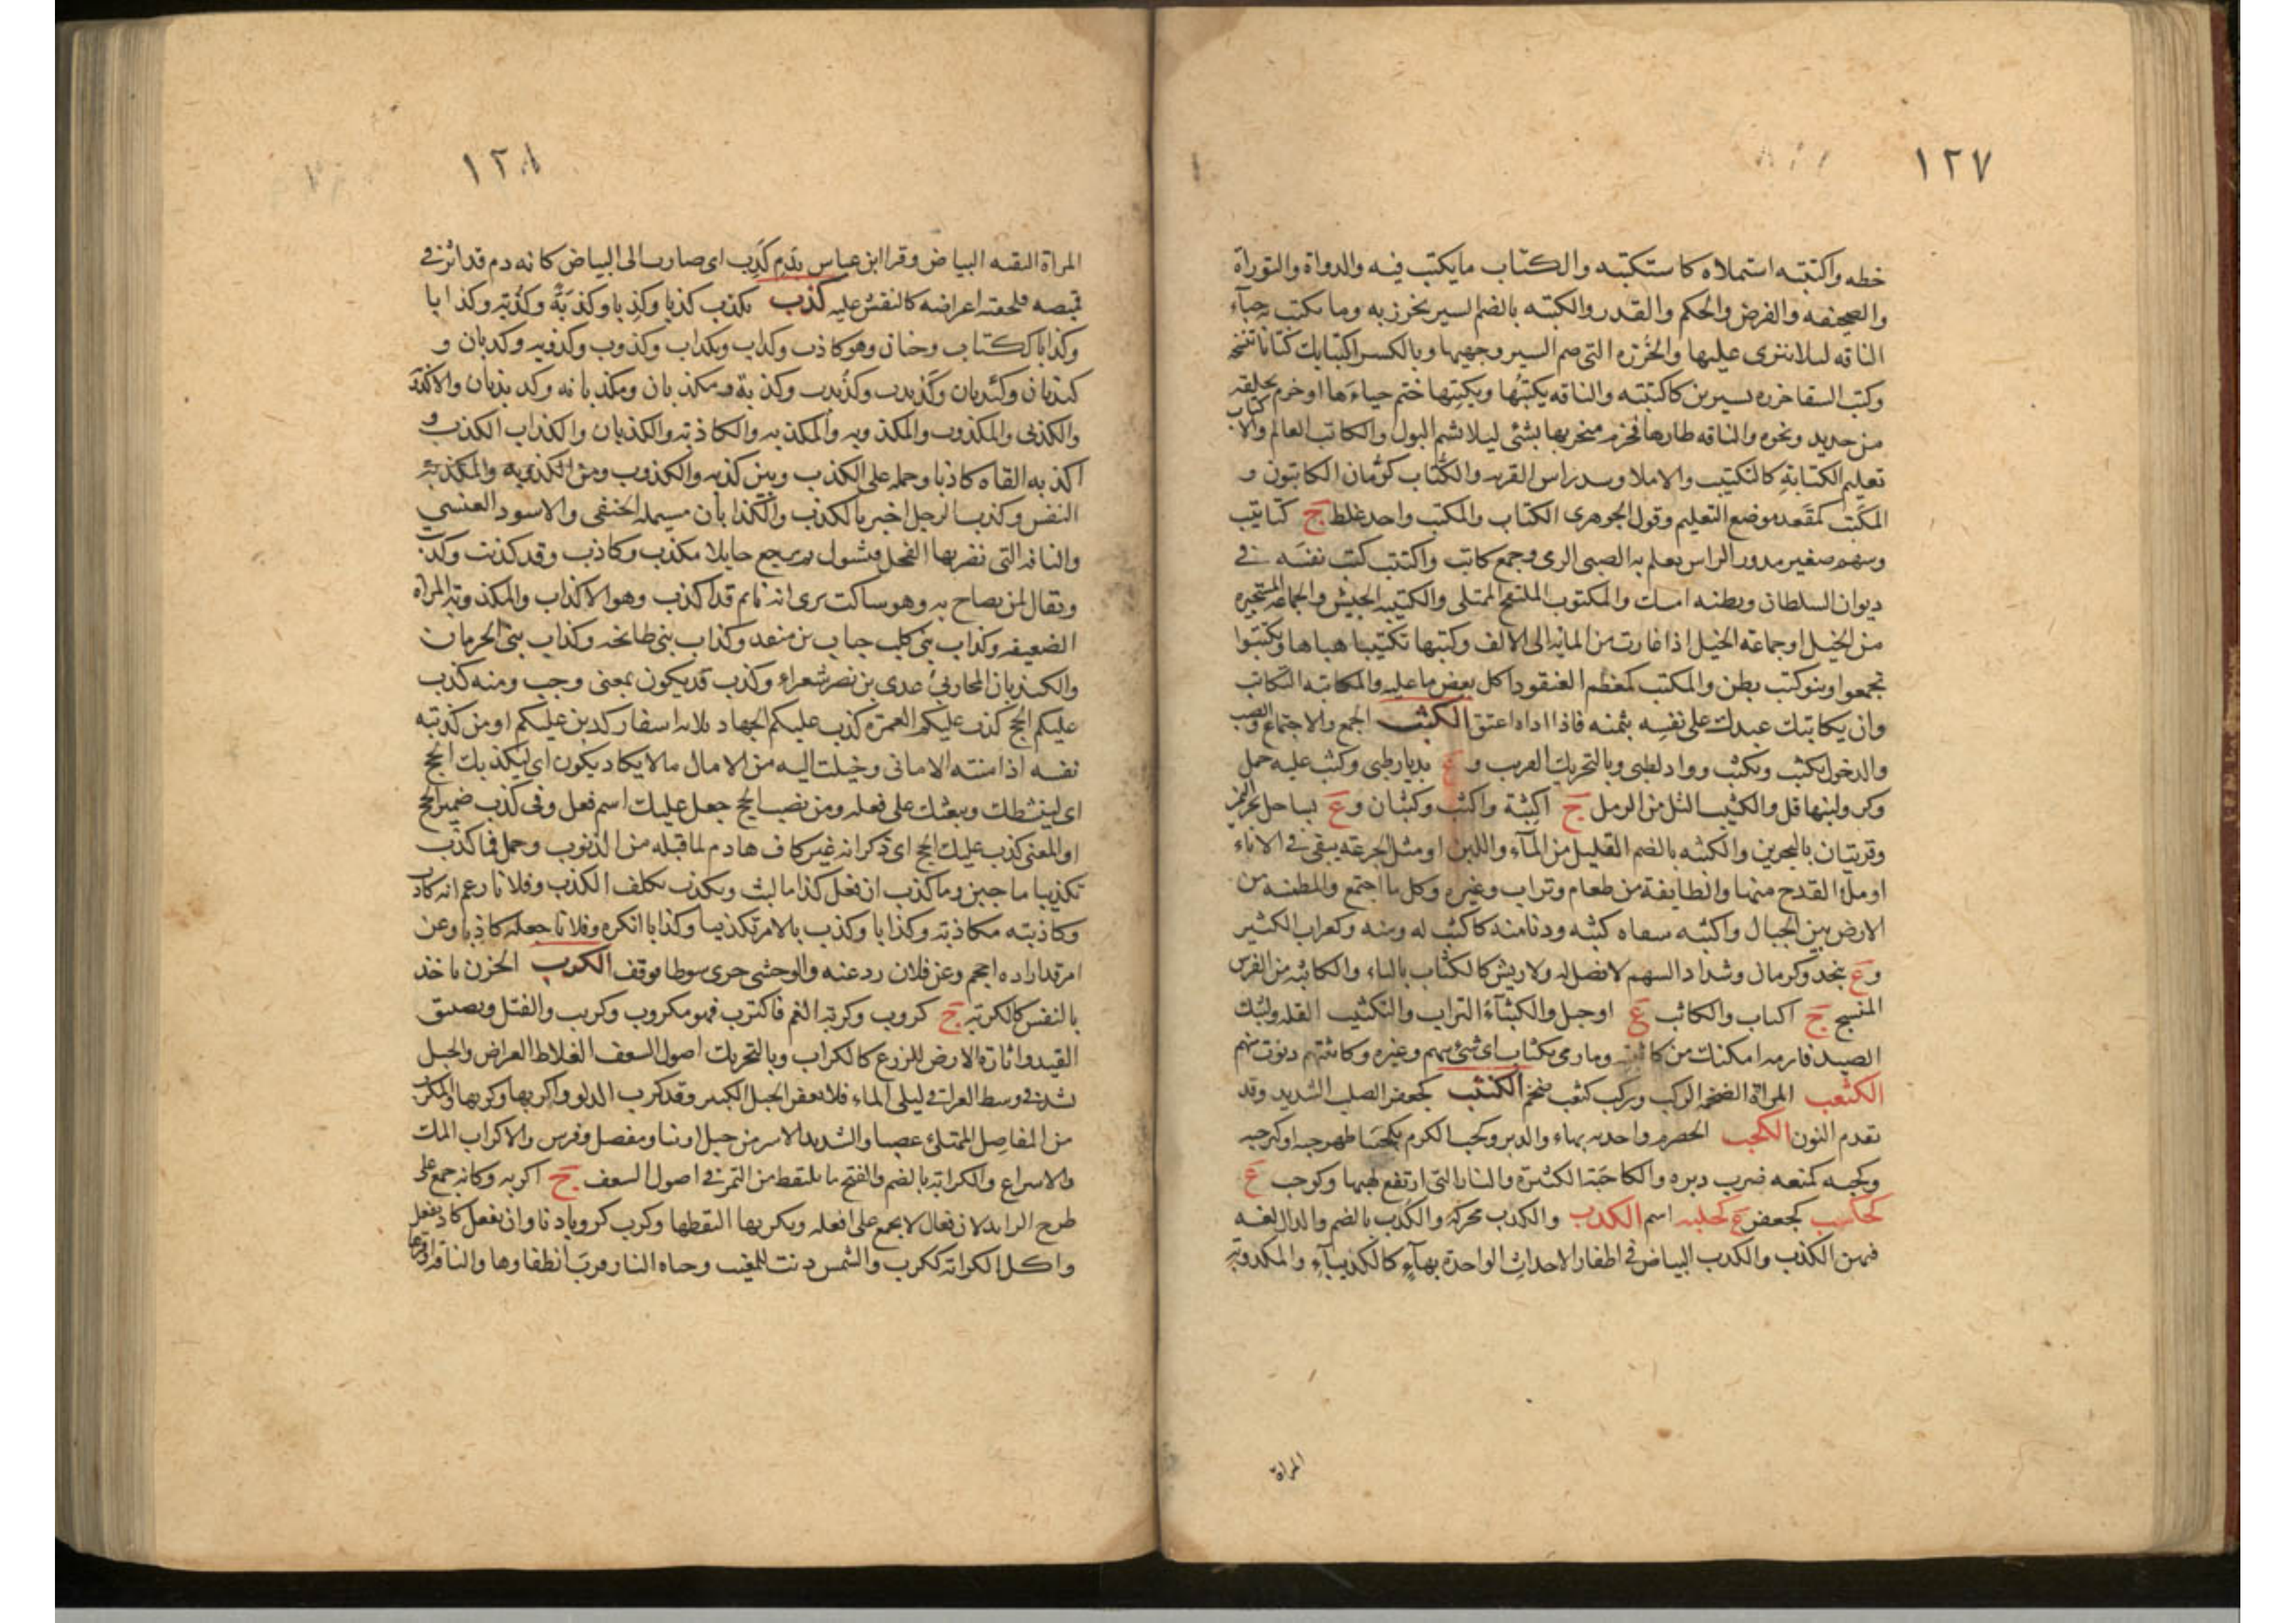 ١٢٧
خطه واكتتبه استملاه كاستكتبه والكتاب مايكتب فيه والدواة والتوراة
والصحيفه والفرض والحكم والقدر والكتبه بالضم السير يخرز به وما يكتب به حياء
الناقه ليلا ينزى عليها والخرزه التى ضم السير وجهيها وبالكسر اكتتابك كتابا تنسخه
وكتب السقا خرزه بسيرين كاكتتبه والناقه يكتبها ويكتبها ختم حياءها او خزم بحلقه
من حديد ونحوه والناقه ظارها فخزم منخريها بشئ ليلا تشم البول والكاتب العالم والاكتاب
تعليم الكتابة كالتكتيب والاملا وشد راس القربه والكتاب كرمان الكاتبون و
المكتب كمقعد موضع التعليم وقول الجوهرى الكتاب والمكتب واحد غلط ج كتاتيب
وسهم صغير مدور الراس يعلم به الصبى الرمى وجمع كاتب واكتتب كتب نفسه فى
ديوان السلطان وبطنه امسك والمكتوب المنتفخ الممتلى والكتيبه الجيش والجماعه المستحيزه
من الخيل او جماعه الخيل اذا غارت من المايه الى الالف وكتبها تكتيبا هياها وتكتبوا
تجمعوا وبنو كتب بطن والمكتب كمعظم العنقود اكل بعض ما عليه والمكاتبه التكاتب
وان يكاتبك عبدك على نفسه بثمنه فاذا اداه اعتق الكثب الجمع والاجتماع والصب
والدخول يكثب ويكثب وواد لطيى وبالتحريك القرب و ع بديار طيى وكثب عليه حمل
وكر ولبنها قل والكثيب التل من الرمل ج اكثبة واكثب وكثبان و ع بساحل بحر اليمن
وقريتان بالبحرين والكثبه بالضم القليل من المآء واللبن او مثل الجرعه يبقى فى الاناء
او ملؤ القدح منهما والطايفة من طعام وتراب وغيره وكل ما اجتمع والمطمنه من
الارض بين الجبال واكثبه سقاه كثبه ودنا منه كاكثب له ومنه وكغراب الكثير
و ع بنجد وكرمان وشداد السهم لا نصل له ولا ريش كالكتاب بالتاء والكاثبه من الفرس
المنسج ج اكتاب والكاثب ع او جبل والكثبآء التراب والتكثيب القله ولبثك
الصيد فارمه امكنك من كاثبته وما رمى بكثاب اى شئ سهم وغيره وكاثبتهم دنوت منهم
الكثعب المراة الضخمه الركب وركب كثعب ضخم الكنثب كجعفر الصلب الشديد وقد
تقدم النون الكحب الحصرم واحدته بهاء والدبر وكحب الكرم تكحيبا ظهر حبه او كثر حبه
وكحبه كمنعه ضرب دبره والكاحبة الكثيرة والنار التى ارتفع لهبها وكوحب ع
كحلب كجعفر ع كحلبه اسم الكدب والكدب محركه والكدب بالضم والدال لغه
فيهن الكذب والكدب البياض فى اظفار الاحداث الواحدة بهآء كالكديبآء والمكدوبه
المراة
١٢٨
المراة النقيه البياض وقرا ابن عباس بدم كدب اى ضارب الى البياض كانه دم قد اثر فى
قميصه فلحقته اعراضه كالنقش عليه كذب يكذب كذبا وكذبا وكذبة وكذبه وكذابا
وكذابا ككتاب وجنان وهو كاذب وكذاب وتكذاب وكذوب وكذوبه وكذبان و
كيذبان وكيذبان وكذبذب وكذبذب وكذبة ومكذبان ومكذبانه وكذبذبان والاكذوبه
والكذبى والمكذوب والمكذوبه والمكذبه والكاذبه والكذبان والكذاب الكذب و
اكذبه القاه كاذبا وحمله على الكذب وبين كذبه والكذوب ومن الكذوبه والمكذبه
النفس وكذب الرجل اخبر بالكذب والكذابان مسيلمه الحنفى والاسود العنسي
والناقه التى يضربها الفحل فتشول ثم يرجع حايلا مكذب وكاذب وقد كذبت وكذبت
ويقال لمن يصاح به وهو ساكت يرى انه نايم قد اكذب وهو الاكذاب والمكذوبه المراة
الضعيفه وكذاب بنى كلب جناب بن منقذ وكذاب بنى طابخه وكذاب بنى الحرماز
والكيذبان المحاربى عدى بن نصر شعراء وكذب قد يكون بمعنى وجب ومنه كذب
عليكم الحج كذب عليكم العمرة كذب عليكم الجهاد ثلاثه اسفار كذبن عليكم او من كذبته
نفسه اذا منته الامانى وخيلت اليه من الامال ما لا يكاد يكون اى ليكذبك الحج
اى لينشطك ويبعثك على فعله ومن نصب الحج جعل عليك اسم فعل وفى كذب ضمير الحج
او المعنى كذب عليك الحج اى ذكر انه غير كاف هادم لما قبله من الذنوب وحمل فما كذب
تكذيبا ما جبن وما كذب ان فعل كذا ما لبث وتكذب تكلف الكذب وفلانا زعم انه كاذب
وكاذبته مكاذبة وكذابا وكذب بالامر تكذيبا وكذابا انكره وفلانا جعله كاذبا وعن
امر قد اراده احجم وعن فلان رد عنه والوحشى جرى شوطا فوقف الكرب الحزن ياخذ
بالنفس كالكربه ج كروب وكربه الغم فاكترب فهو مكروب وكريب والفتل وتضييق
القيد واثارة الارض للزرع كالكراب وبالتحريك اصول السعف الغلاظ العراض والحبل
يشد فى وسط العراق ليلى الماء فلا يعفن الحبل الكبير وقد كرب الدلو واكربها وكربها والمكرب
من المفاصل الممتلئ عصبا والشديد الاسر من حبل او بنا ومفصل وفرس والاكراب الملء
والاسراع والكرابة بالضم والفتح ما يلتقط من التمر فى اصول السعف ج اكربه وكانه جمع على
طرح الزايد لان فعالا لا يجمع على افعله وتكربها التقطها وكرب كروبا دنا وان يفعل كاد يفعل
واكل الكرابة ككرب والشمس دنت للمغيب وحياه النار قرب انطفاوها والناقه اوقرها